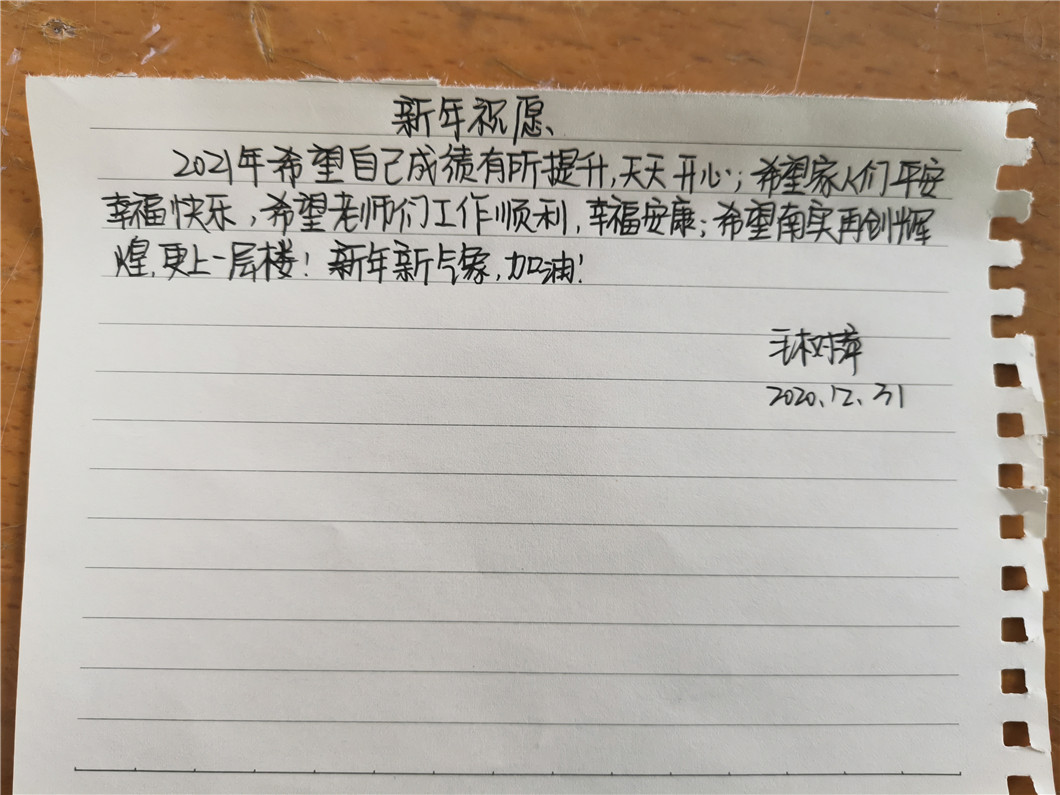 新年祝愿
2021年希望自己成绩有所提升,天天开心;希望家人们平安
幸福快乐,希望老师们工作顺利,幸福安康;希望南实再创辉
煌,更上一层楼!新年新气象,加油!
2020.12.31